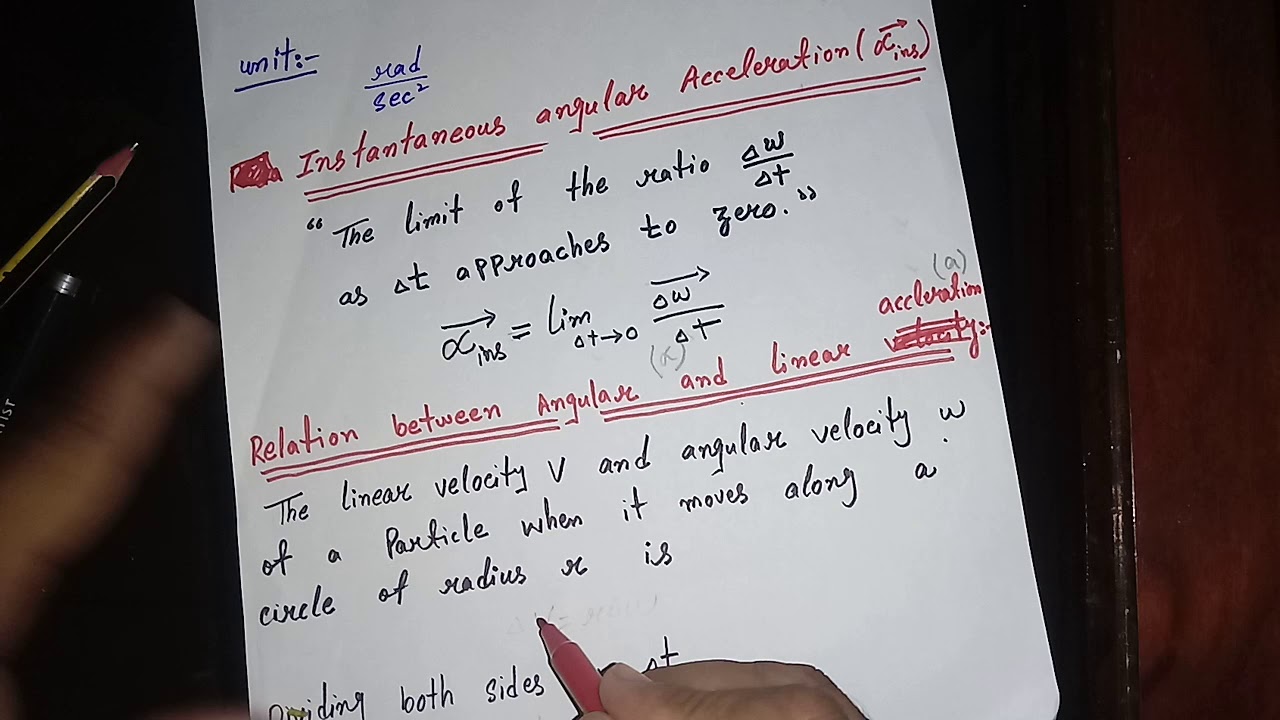 unit:-
rad
sec²
Instantaneous angular Acceleration (α⃗ins)
“The limit of the ratio Δw/Δt
as Δt approaches to zero.”
α⃗ins = lim Δt→0 Δw⃗/Δt
(a)
accleration
(α)
Relation between Angular and linear velocity:-
The linear velocity V and angular velocity w
of a Particle when it moves along a
circle of radius r is
Dividing both sides Δt